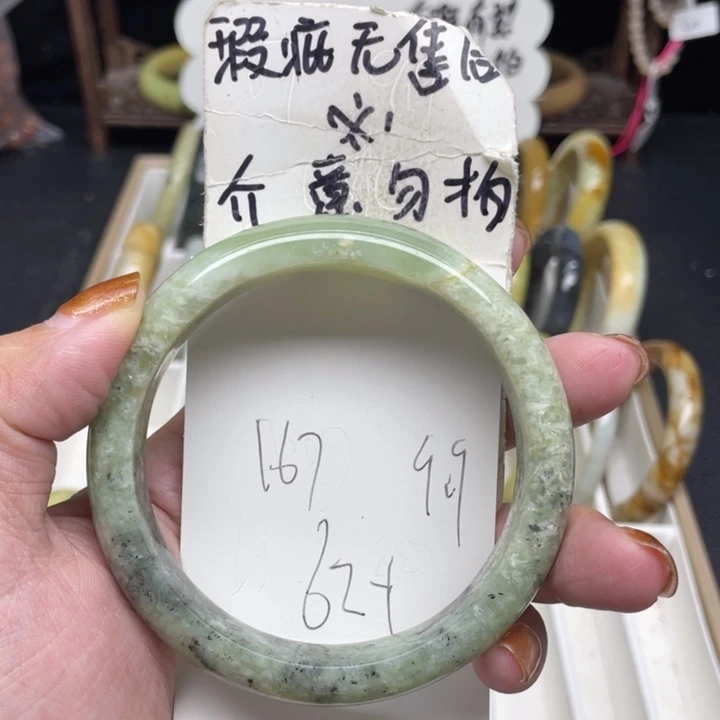 瑕疵无售后
※
介意勿拍
167 99
62+